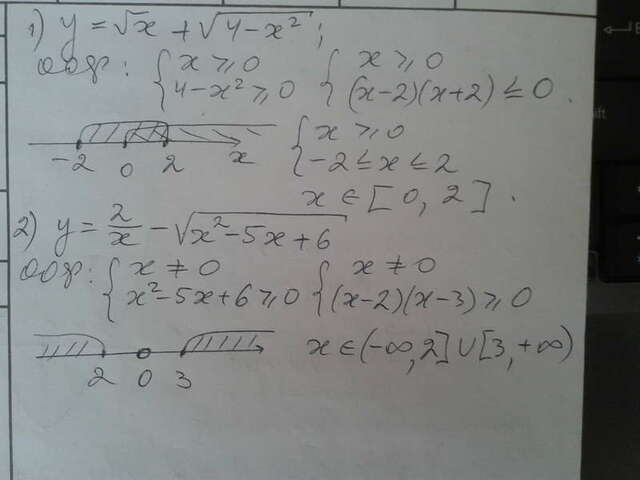 1) y = √x + √4-x² ;
ООФ: { x ≥ 0 { x ≥ 0
4-x² ≥ 0 (x-2)(x+2) ≤ 0.
-2 0 2 x { x ≥ 0
-2 ≤ x ≤ 2
x ∈ [0, 2].
2) y = 2/x - √x²-5x+6
ООФ: { x ≠ 0 { x ≠ 0
x²-5x+6 ≥ 0 (x-2)(x-3) ≥ 0
2 0 3 x ∈ (-∞, 2] ∪ [3, +∞)